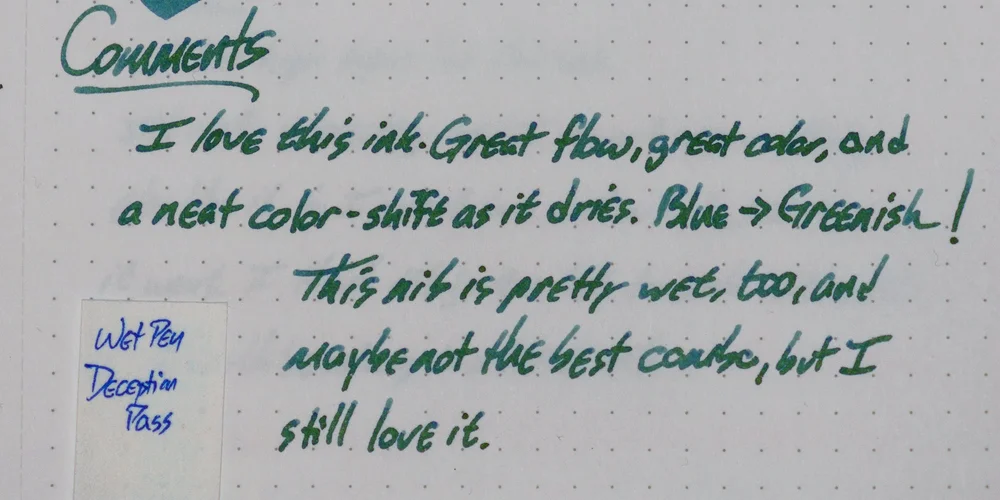 Comments
I love this ink. Great flow, great color, and
a neat color-shift as it dries. Blue → Greenish!
This nib is pretty wet, too, and
maybe not the best combo, but I
still love it.
Wet Pen
Deception
Pass